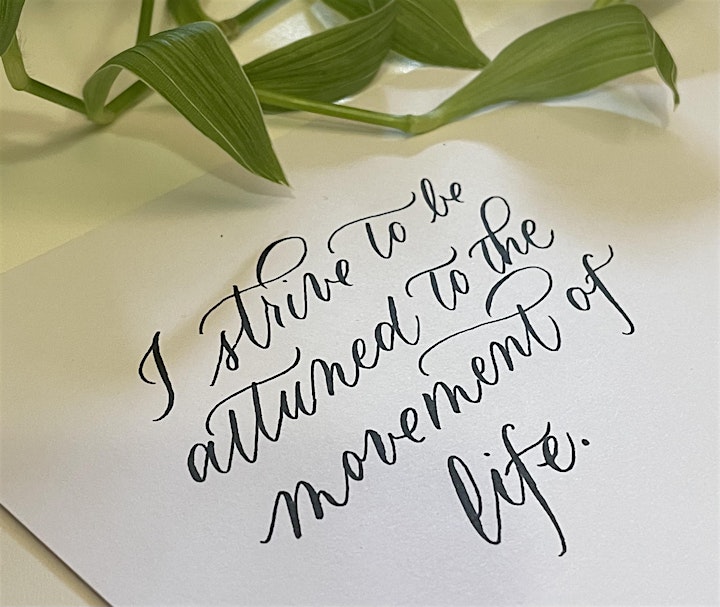 I strive to be
attuned to the
movement of
life.